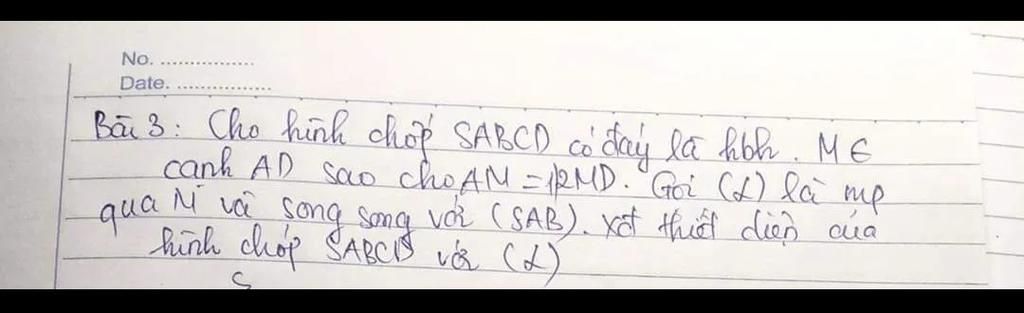 No. ................
Date. ................
Bài 3: Cho hình chóp SABCD có đáy là hbh. M ∈
cạnh AD sao cho AM = 2MD. Gọi (α) là mp
qua M và song song với (SAB). Xđ thiết diện của
hình chóp SABCD với (α)
S